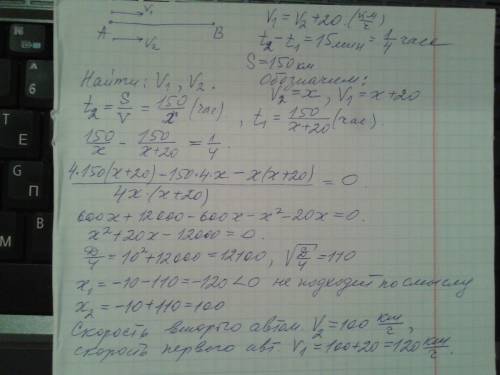 V₁
A B
V₂
V₁ = V₂ + 20 (км/ч)
t₂ - t₁ = 15 мин = 1/4 часа
S = 150 км
Найти: V₁, V₂.
Обозначим:
V₂ = x, V₁ = x + 20
t₂ = S/V = 150/x (час), t₁ = 150/(x+20) (час).
150/x - 150/(x+20) = 1/4
(4·150(x+20) - 150·4·x - x(x+20))/(4x·(x+20)) = 0
600x + 12000 - 600x - x² - 20x = 0.
x² + 20x - 12000 = 0.
D/4 = 10² + 12000 = 12100, √(D/4) = 110
x₁ = -10 - 110 = -120 < 0 не подходит по смыслу
x₂ = -10 + 110 = 100
Скорость второго автом. V₂ = 100 км/ч,
скорость первого авт. V₁ = 100 + 20 = 120 км/ч.
6
П